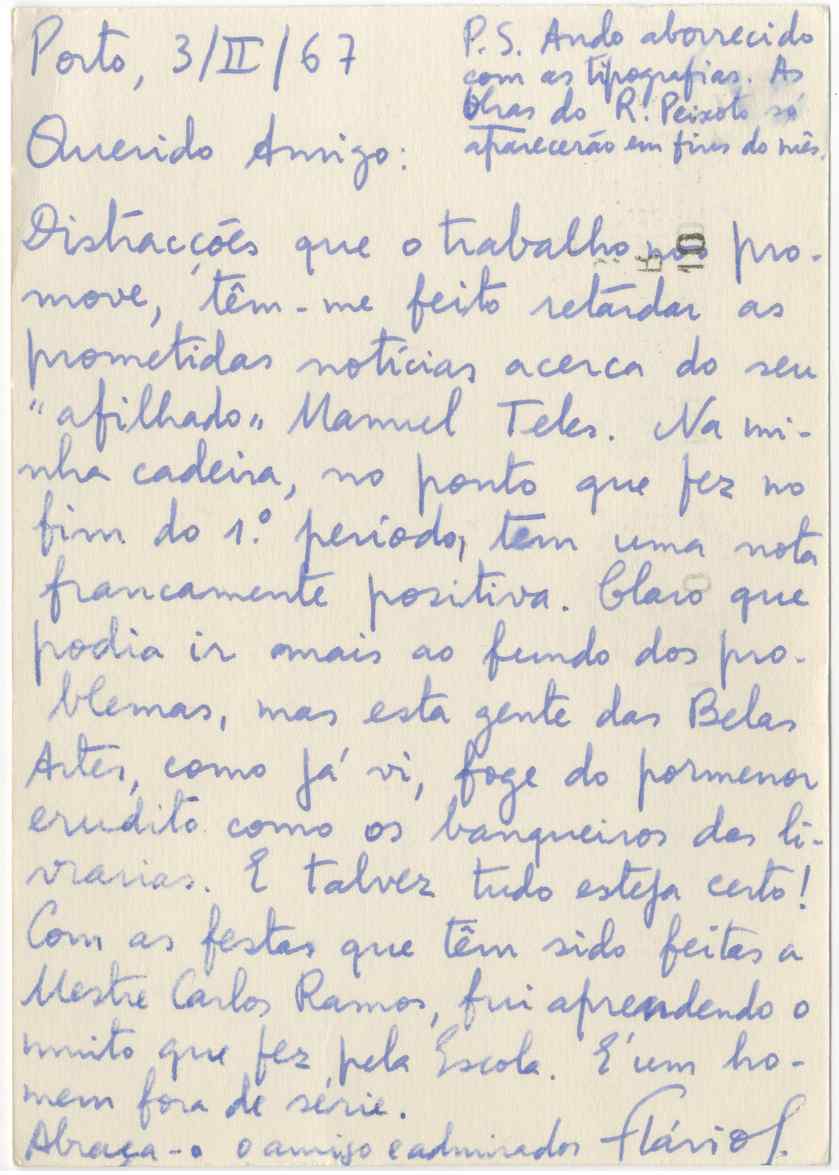 Porto, 3/II/67
Querido Amigo:
Distracções que o trabalho nos pro-
move, têm-me feito retardar as
prometidas notícias acerca do seu
"afilhado" Manuel Teles. Na mi-
nha cadeira, no ponto que fez no
fim do 1.º período, tem uma nota
francamente positiva. Claro que
podia ir mais ao fundo dos pro-
blemas, mas esta gente das Belas
Artes, como já vi, foge do pormenor
erudito como os banqueiros das li-
vrarias. E talvez tudo esteja certo!
Com as festas que têm sido feitas a
Mestre Carlos Ramos, fui aprendendo o
muito que fez pela Escola. É um ho-
mem fora de série.
Abraça-o o amigo e admirador Flávio
P.S. Ando aborrecido
com as tipografias. As
Obras do R. Peixoto só
aparecerão em fins do mês.
10